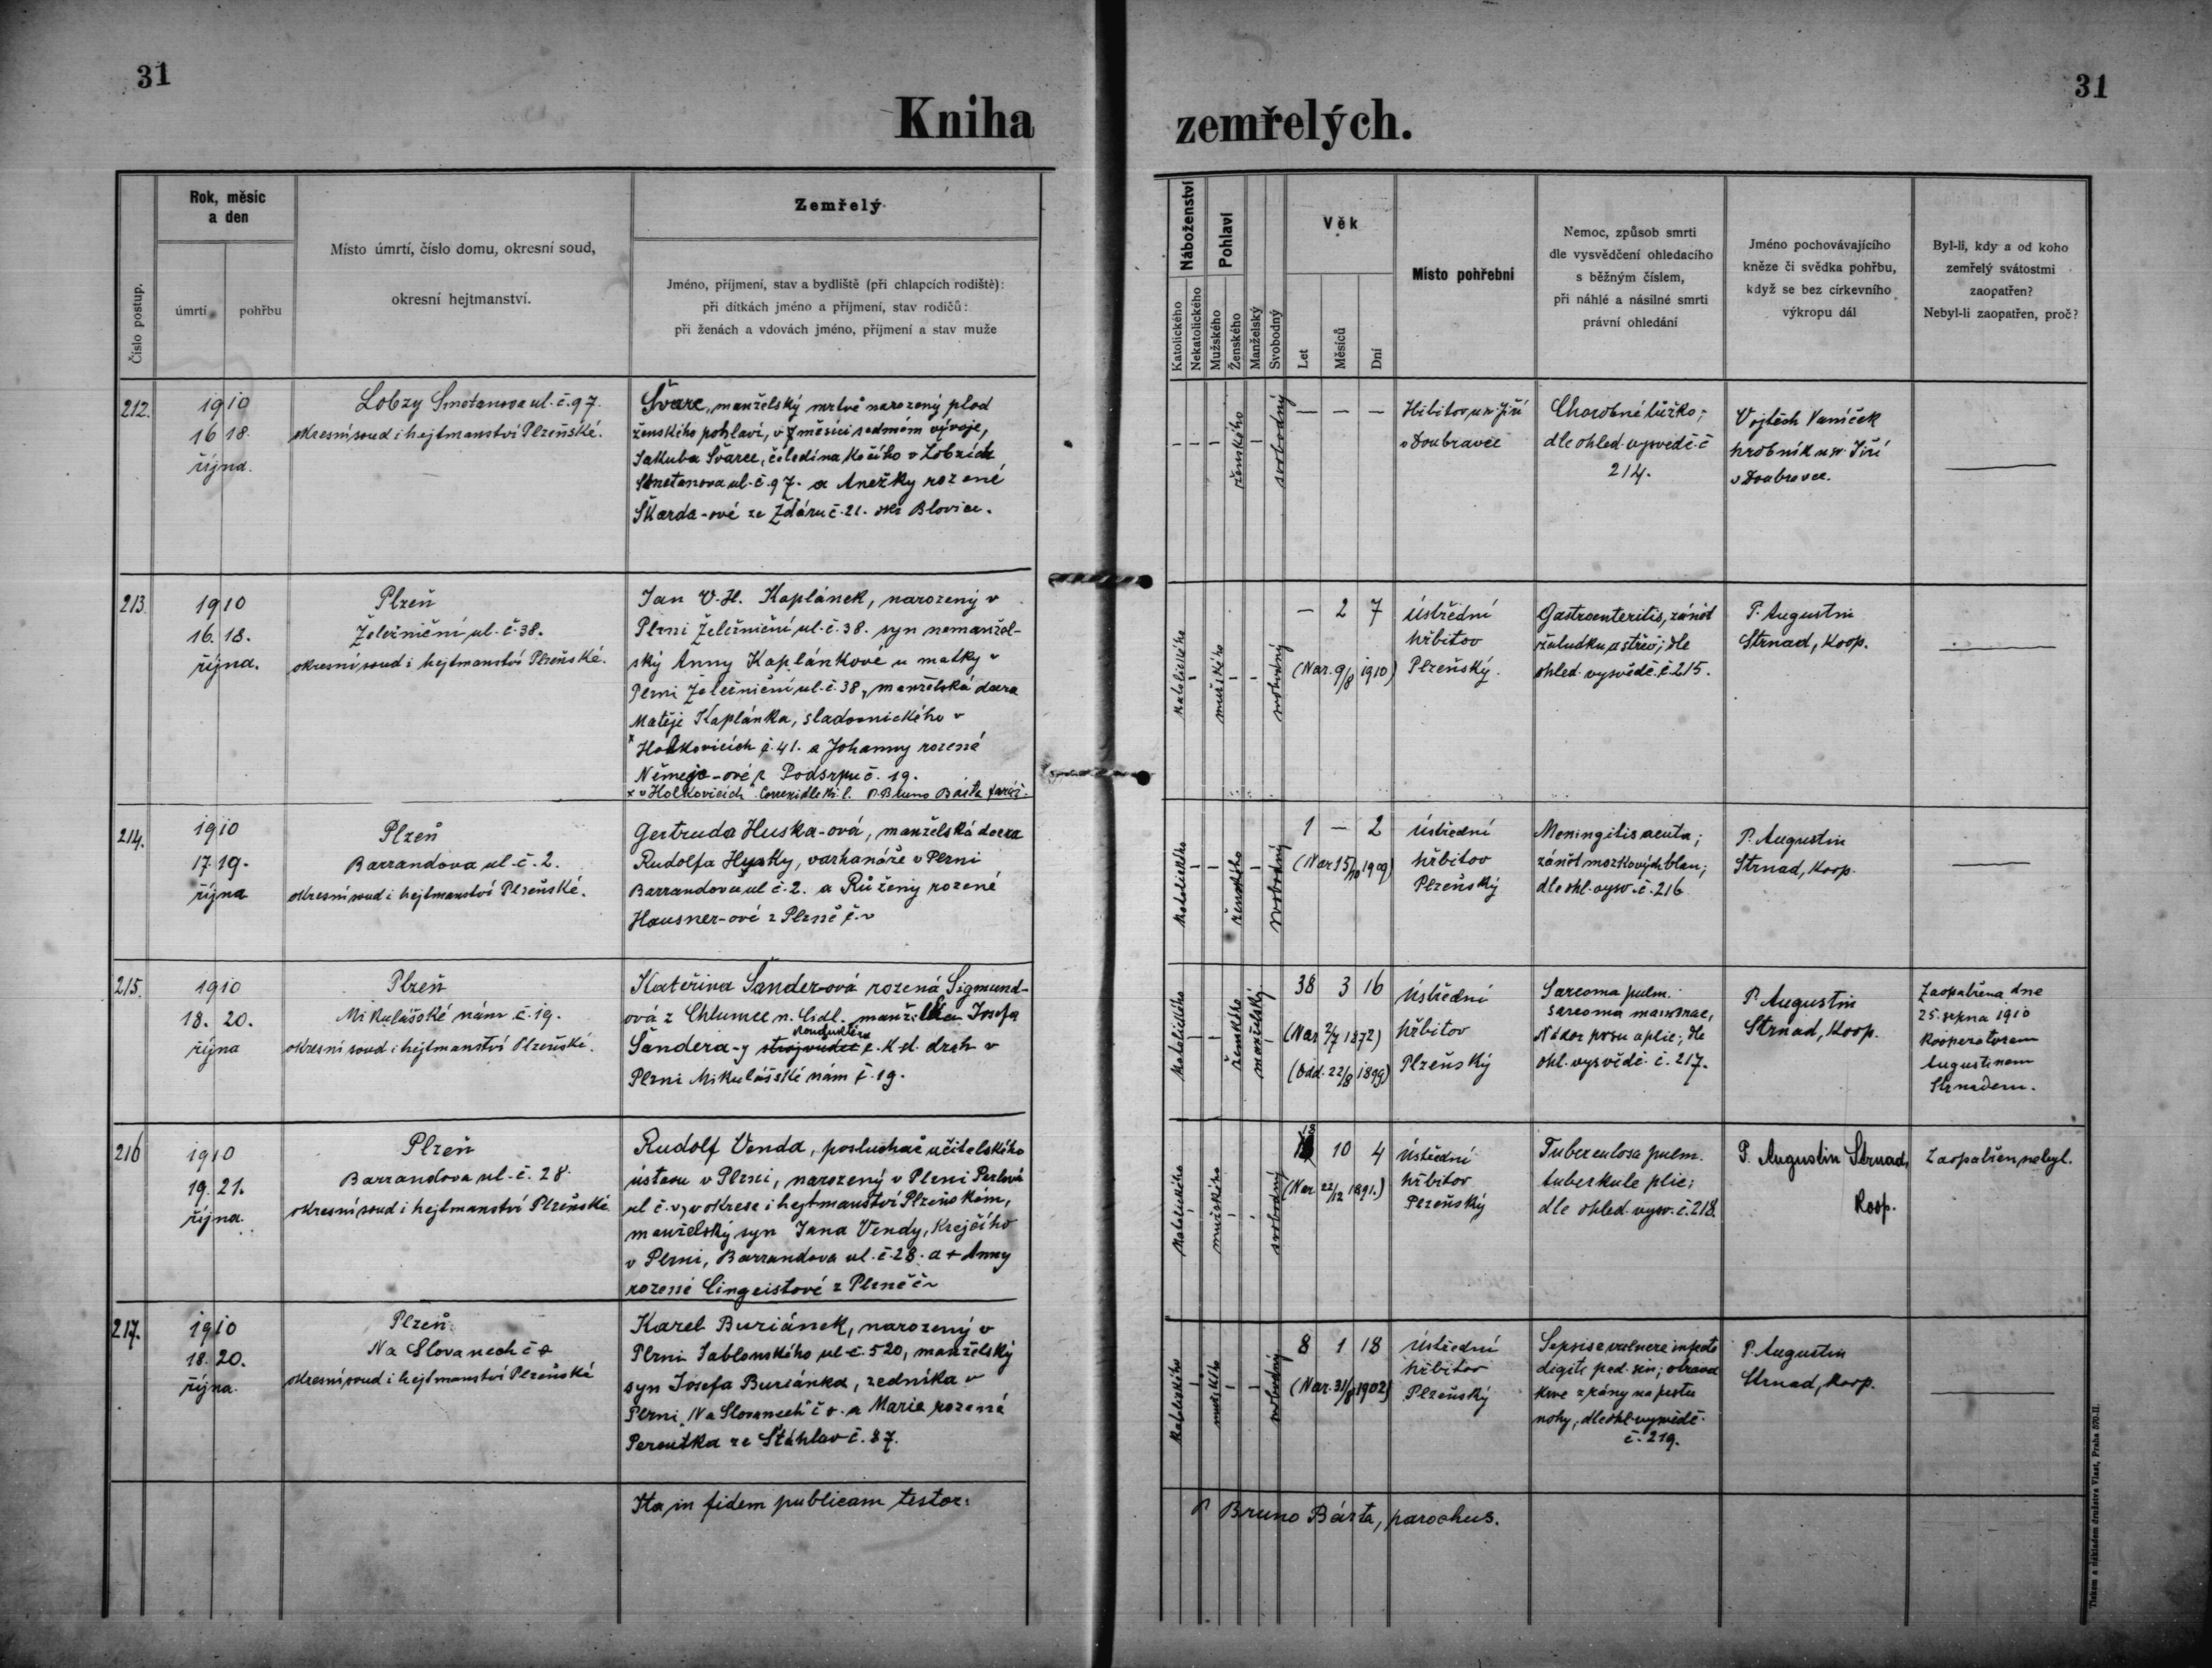 31
31
Kniha
zemřelých.
Číslo postup.
Rok, měsíc
a den
úmrtí
pohřbu
Místo úmrtí, číslo domu, okresní soud,
okresní hejtmanství.
Zemřelý
Jméno, příjmení, stav a bydliště (při chlapcích rodiště):
při dítkách jméno a příjmení, stav rodičů:
při ženách a vdovách jméno, příjmení a stav muže
Náboženství
Katolického
Nekatolického
Pohlaví
Mužského
Ženského
Manželský
Svobodný
Věk
Let
Měsíců
Dní
Místo pohřební
Nemoc, způsob smrti
dle vysvědčení ohledacího
s běžným číslem,
při náhlé a násilné smrti
právní ohledání
Jméno pochovávajícího
kněze či svědka pohřbu,
když se bez církevního
výkropu dál
Byl-li, kdy a od koho
zemřelý svátostmi
zaopatřen?
Nebyl-li zaopatřen, proč?
212.
1910
16 18.
října.
Lobzy Smetanova ul. č. 97.
okresní soud i hejtmanství Plzeňské.
Švarc, manželský mrtvě narozený plod
ženského pohlaví, v 7 měsíci sedmém vývoje,
Jakuba Švarce, čeledína kočího v Lobzích
Smetanova ul. č. 97. a Anežky rozené
Škarda-ové ze Ždáru č. 21. okr Blovice.
ženského
svobodný
— — —
Hřbitov u sv Jiří
v Doubravce
Chorobné lůžko;
dle ohled. vysvědč. č
214.
Vojtěch Vaníček
hrobník u sv. Jiří
v Doubravce.
213.
1910
16. 18.
října.
Plzeň
Železniční ul. č. 38.
okresní soud i hejtmanství Plzeňské.
Jan V. H. Kaplánek, narozený v
Plzni Železniční ul. č. 38. syn nemanžel-
ský Anny Kaplánkové u matky v
Plzni Železniční ul. č. 38, manželská dcera
Matěje Kaplánka, sladovnického v
x Holkovicích č. 41. a Johanny rozené
Němejc-ové z Podsrpu č. 19.
x v "Holkovicích" P. Bruno Bárta farář.
katolického
mužského
svobodný
— 2 7
(Nar. 9/8 1910)
Ústřední
hřbitov
Plzeňský.
Gastroenteritis, zánět
žaludku a střev; dle
ohled. vysvědč. č. 215.
P. Augustin
Strnad, koop.
214.
1910
17 19.
října
Plzeň
Barrandova ul. č. 2.
okresní soud i hejtmanství Plzeňské.
Gertruda Huska-ová, manželská dcera
Rudolfa Husky, varhanáře v Plzni
Barrandova ul č. 2. a Růženy rozené
Hausner-ové z Plzně č. v
katolického
ženského
svobodný
1 — 2
(Nar 15/10 1909)
Ústřední
hřbitov
Plzeňský
Meningitis acuta;
zánět mozkových blan;
dle ohl. vysv. č. 216
P. Augustin
Strnad, koop.
215.
1910
18. 20.
října
Plzeň
Mikulášské nám. č. 19.
okresní soud i hejtmanství Plzeňské.
Kateřina Šander-ová rozená Sigmund-
ová z Chlumce n. Cidl. manželka Josefa
konduktéra
Šandera-y strojvůdce c. k. st. drah v
Plzni Mikulášské nám č. 19.
katolického
ženského
manželský
38 3 16
(Nar 2/7 1872)
(Odd. 22/8 1899)
Ústřední
hřbitov
Plzeňský
Sarcoma pulm.
sarcoma mammae,
Nádor prsu a plic; dle
ohl. vysvědč. č. 217.
P. Augustin
Strnad, koop.
Zaopatřena dne
25. srpna 1910
kooperatorem
Augustinem
Strnadem.
216
1910
19. 21.
října.
Plzeň
Barrandova ul. č. 28
okresní soud i hejtmanství Plzeňské
Rudolf Venda, posluchač učitelského
ústavu v Plzni, narozený v Plzni Perlová
ul č. v, v okrese i hejtmanství Plzeňském,
manželský syn Jana Vendy, krejčího
v Plzni, Barrandova ul. č. 28. a + Anny
rozené Lingeistové z Plzně č v
katolického
mužského
svobodný
18 10 4
(Nar 22/12 1891.)
Ústřední
hřbitov
Plzeňský
Tuberculosa pulm.
tuberkule plic;
dle ohled. vysv. č. 218.
P. Augustin Strnad,
koop.
Zaopatřen nebyl.
217.
1910
18. 20.
října.
Plzeň
Na Slovanech č
okresní soud i hejtmanství Plzeňské
Karel Buriánek, narozený v
Plzni Jablonského ul č. 520, manželský
syn Josefa Buriánka, zedníka v
Plzni, "Na Slovanech" č v. a Marie rozené
Peroutka ze Šťáhlav č. 87.
katolického
mužského
svobodný
8 1 18
(Nar. 31/8 1902)
Ústřední
hřbitov
Plzeňský
Sepsis e vulnere infecto
digiti ped. sin; otrava
krve z rány na prstu
nohy, dle ohl. vysvědč.
č. 219.
P. Augustin
Strnad, koop.
Ita in fidem publicam testor:
P Bruno Bárta, parochus.
Tiskem a nákladem družstva Vlast, Praha 570-II.